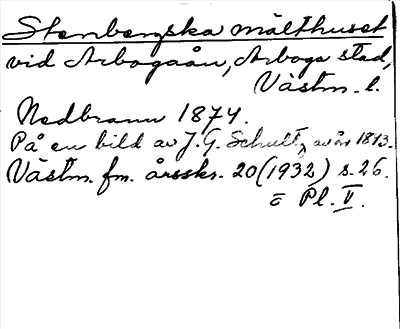 Stenbergska mälthuset
vid Arbogaån, Arboga stad,
Västm. l.
Nedbrann 1874.
På en bild av J. G. Schultz, av år 1873.
Västm. fm. årsskr. 20 (1932) s. 26.
o Pl. II.